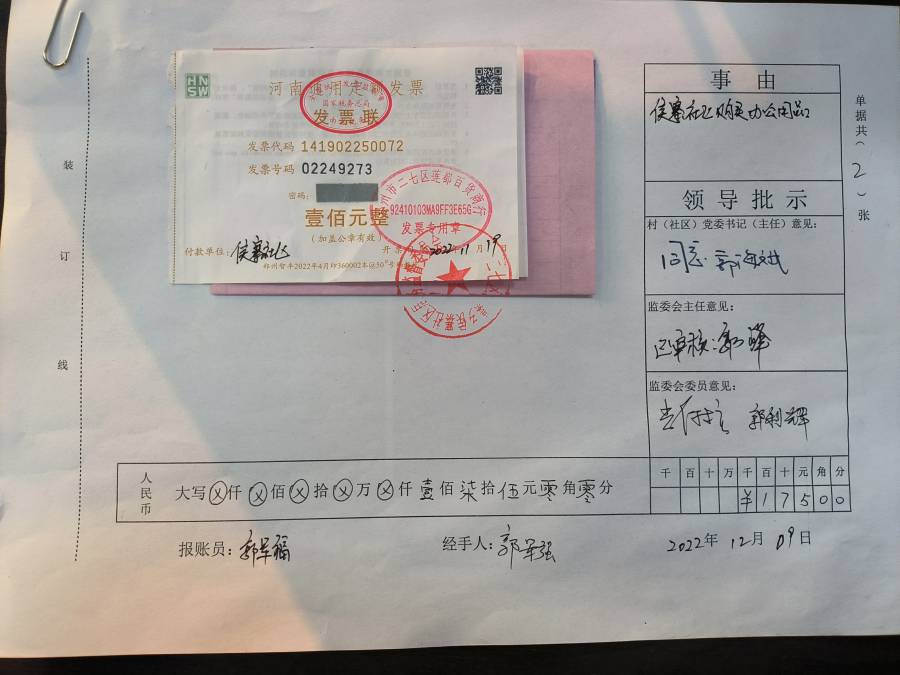 HN
SW
河南通用定额发票
国家税务总局
发票联
发票代码 141902250072
发票号码 02249273
密码:
壹佰元整
(加盖公章有效)
付款单位: 侯寨社区
2022年11月19日
郑州市二七区莲都百货商行
92410103MA9FF3E65G
发票专用章
装
订
线
事由
侯寨社区购买办公用品
领导批示
村(社区)党委书记(主任)意见:
同意
监委会主任意见:
已审核:郭峰
监委会委员意见:
郭利辉
单据共(2)张
千 百 十 万 千 百 十 元 角 分
¥ 1 7 5 0 0
人民币
大写ⓧ仟ⓧ佰ⓧ拾ⓧ万ⓧ仟壹佰柒拾伍元零角零分
报账员: 郭军福
经手人: 郭军强
2022年 12月 09日